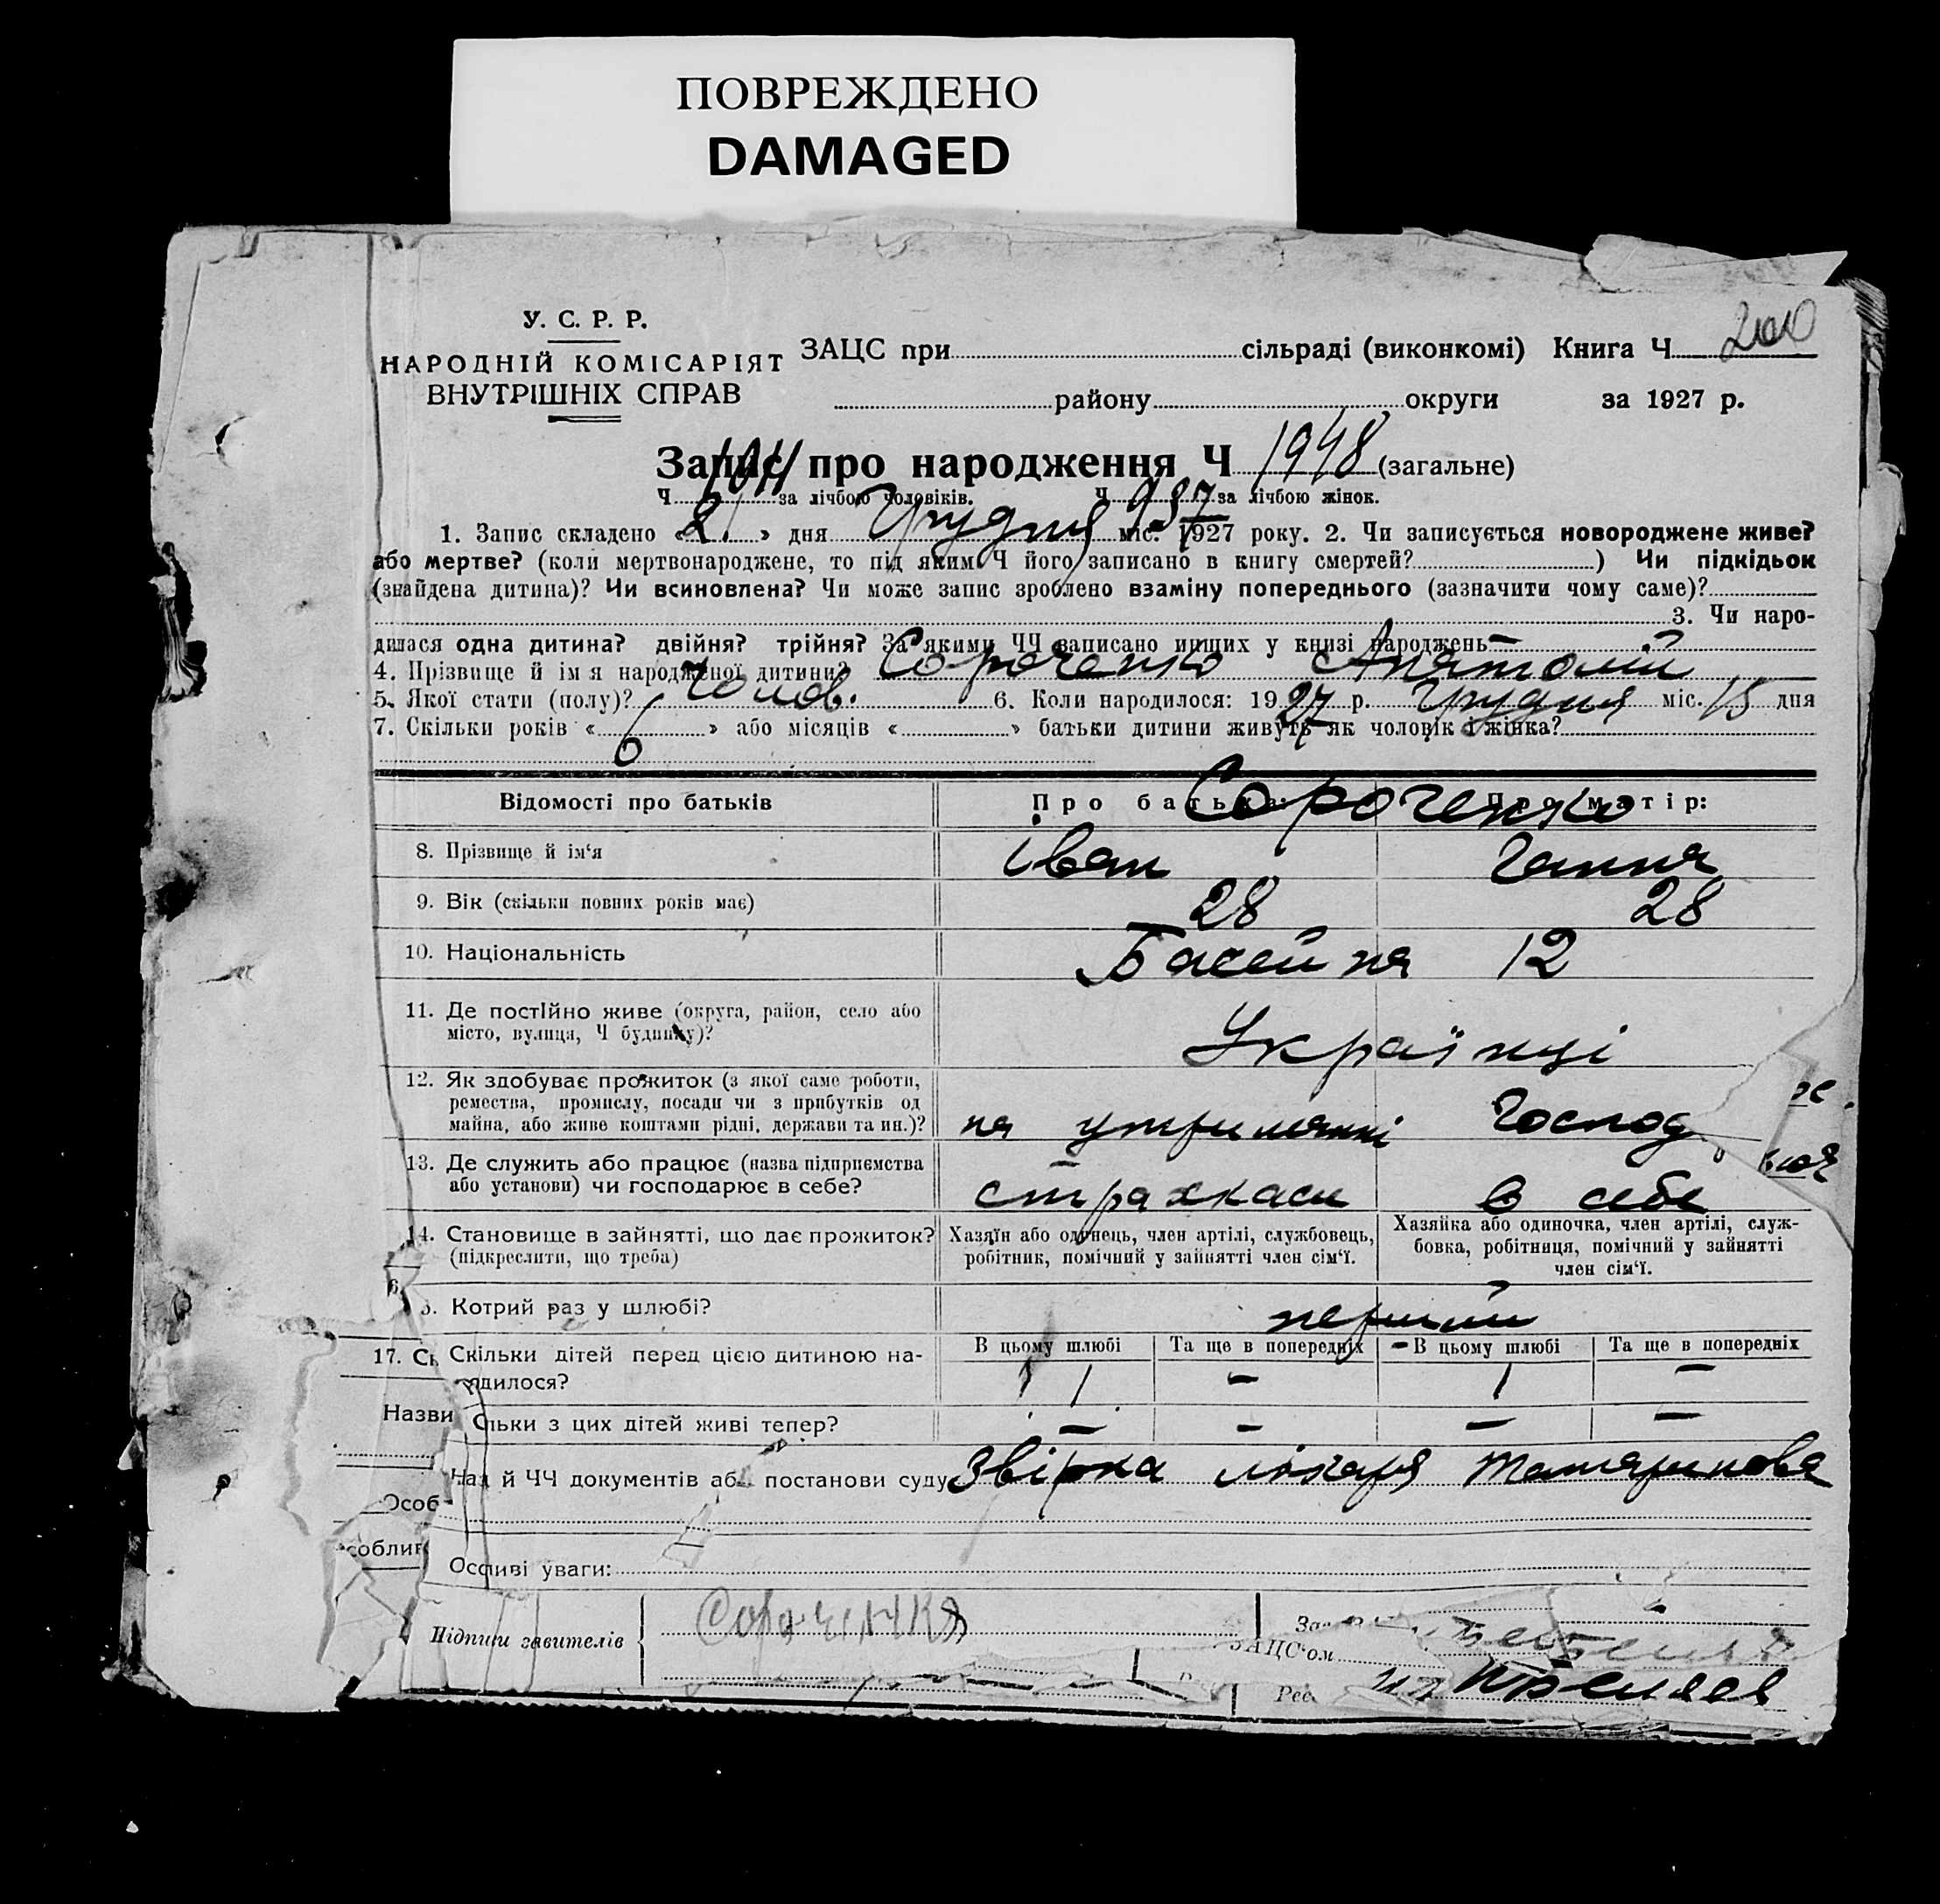 ПОВРЕЖДЕНО
DAMAGED
У. С. Р. Р.
НАРОДНІЙ КОМІСАРІЯТ
ВНУТРІШНІХ СПРАВ
ЗАЦС при сільраді (виконкомі) Книга Ч 200
району округи за 1927 р.
Запис про народження Ч 1948 (загальне)
Ч 1011 за лічбою чоловіків. Ч 937 за лічбою жінок.
1. Запис складено «21» дня Грудня міс. 1927 року. 2. Чи записується новороджене живе?
або мертве? (коли мертвонароджене, то під яким Ч його записано в книгу смертей? ) Чи підкідьок
(знайдена дитина)? Чи всиновлена? Чи може запис зроблено взаміну попереднього (зазначити чому саме)?
3. Чи наро-
дилася одна дитина? двійня? трійня? За якими ЧЧ записано инших у книзі народжень –
4. Прізвище й ім я народженої дитини? Сороченко Анатолій
5. Якої стати (полу)? чолов. 6. Коли народилося: 1927 р. Грудня міс. 15 дня
7. Скільки років « 6 » або місяців « » батьки дитини живуть як чоловік і жінка?
Відомості про батьків Про батька: Про матір:
Сороченко
8. Прізвище й ім'я Іван Ганна
9. Вік (скільки повних років має) 28 28
10. Національність Басейна 12
11. Де постійно живе (округа, район, село або
місто, вулиця, Ч будинку)? Українці
12. Як здобуває прожиток (з якої саме роботи,
ремества, промислу, посади чи з прибутків од
майна, або живе коштами рідні, держави та ин.)? на утриманні Господ
13. Де служить або працює (назва підприємства
або установи) чи господарює в себе? страхкаси в себе
14. Становище в зайнятті, що дає прожиток?
(підкреслити, що треба)
Хазяїн або одинець, член артілі, службовець,
робітник, помічний у зайнятті член сім'ї.
Хазяйка або одиночка, член артілі, служ-
бовка, робітниця, помічний у зайнятті
член сім'ї.
Котрий раз у шлюбі? перший
В цьому шлюбі Та ще в попередніх В цьому шлюбі Та ще в попередніх
17. Ск Скільки дітей перед цією дитиною на-
дилося? 1 – 1 –
Назви
ільки з цих дітей живі тепер? – – – –
й ЧЧ документів або постанови суду Звірка лікаря Татаринова
Особ
соблив
Осливі уваги:
Підписи завителів
ЗАЦС'ом
Рес.